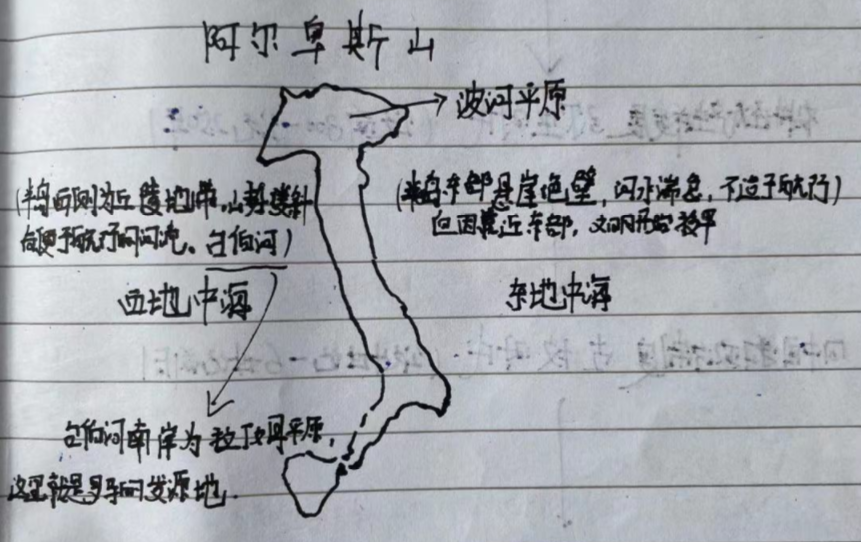 阿尔卑斯山
波河平原
(半岛西侧为丘陵地带,山势倾斜
有便于航行的河流。台伯河)
(半岛东部悬崖绝壁,河水湍急,不适于航行)
但因靠近东部,文明开始较早
西地中海
东地中海
台伯河南岸为拉丁姆平原,
这里就是罗马的发源地.